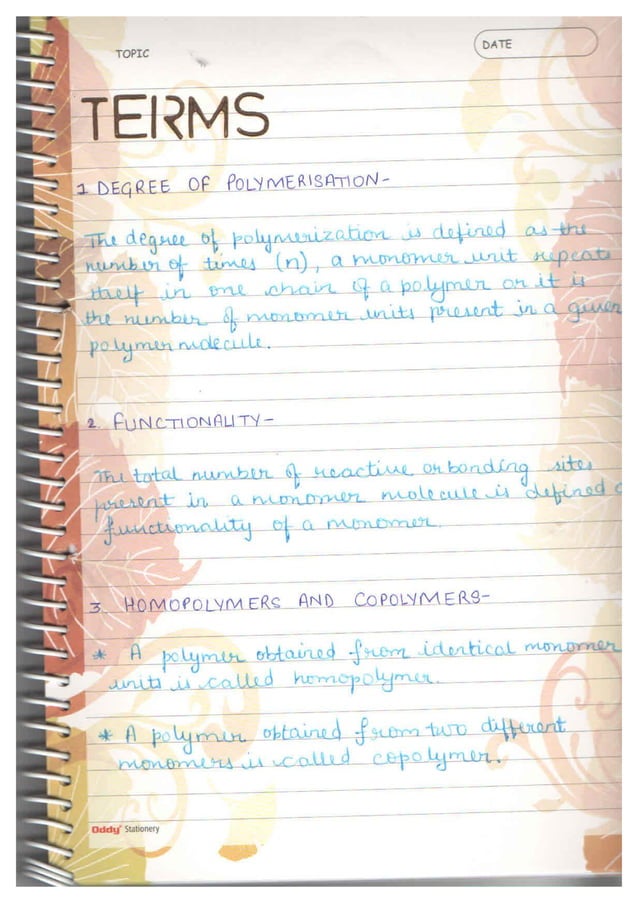 TOPIC
DATE
TERMS
1 DEGREE OF POLYMERISATION-
The degree of polymerization is defined as the
number of times (n), a monomer unit repeats
itself in one chain of a polymer or it is
the number of monomer units present in a given
polymer molecule.
2. FUNCTIONALITY-
The total number of reactive or bonding sites
present in a monomer molecule is defined
functionality of a monomer.
3. HOMOPOLYMERS AND COPOLYMERS-
* A polymer obtained from identical monomer
units is called homopolymer.
* A polymer obtained from two different
monomers is called copolymer.
Oddy Stationery